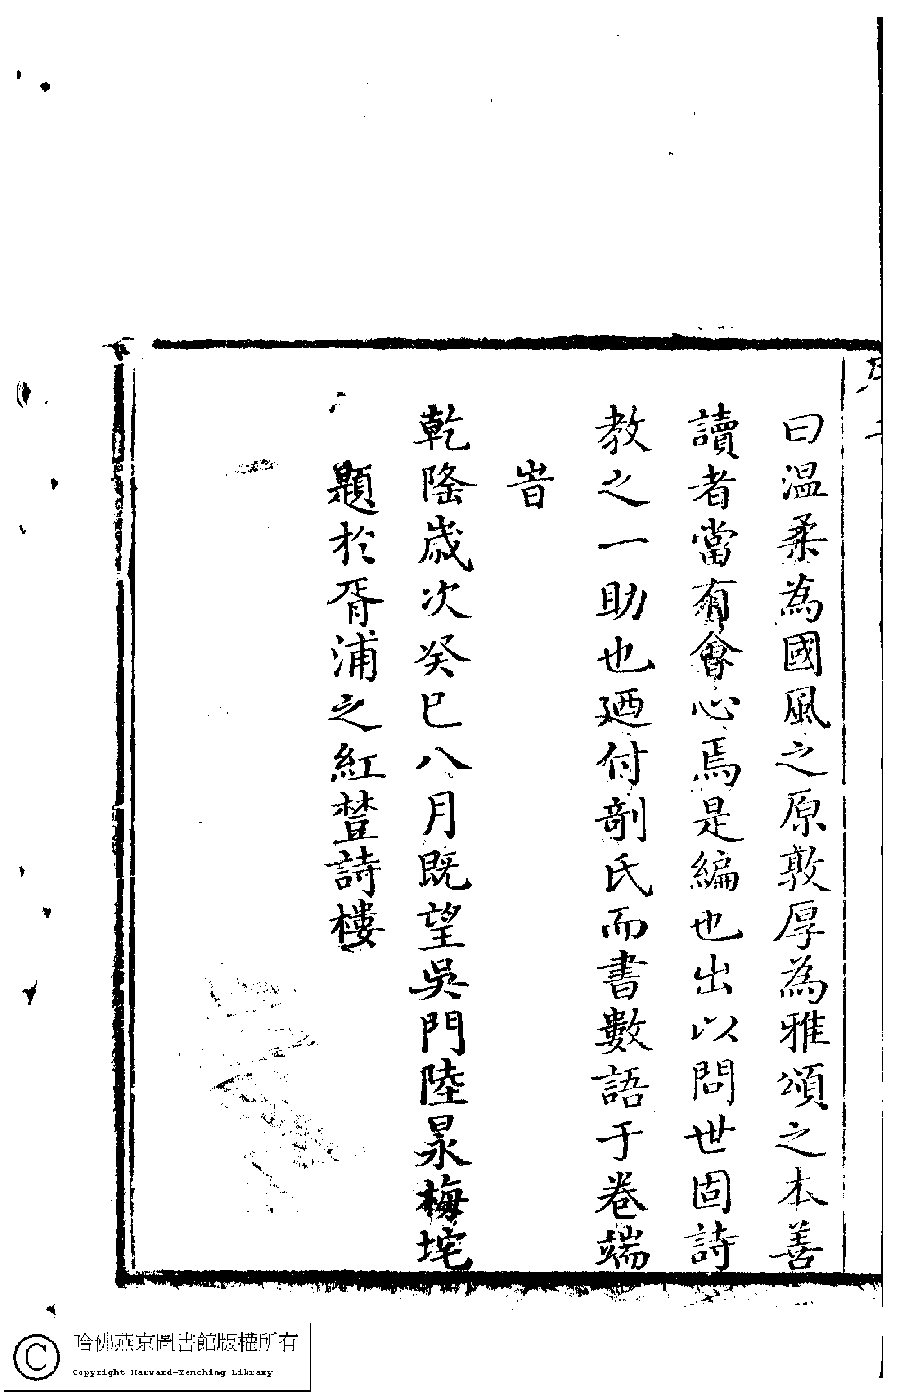 曰溫柔為國風之原敦厚為雅頌之本善
讀者當有會心焉是編也出以問世固詩
教之一助也廼付剞氏而書數語于卷端
旹
乾隆歲次癸巳八月既望吳門陸泉梅垞
題於胥浦之紅蕉詩樓
哈佛燕京圖書館版權所有
Copyright Harvard-Yenching Library